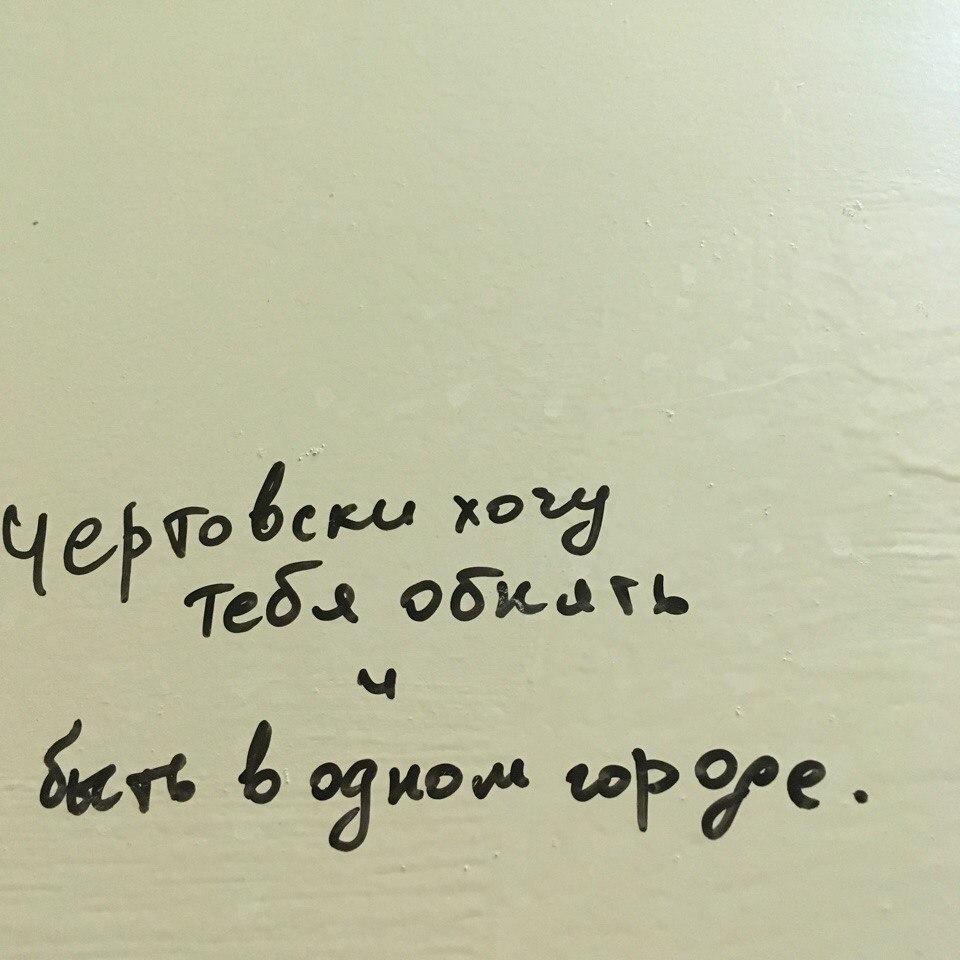 Чертовски хочу
тебя обнять
и
быть в одном городе.